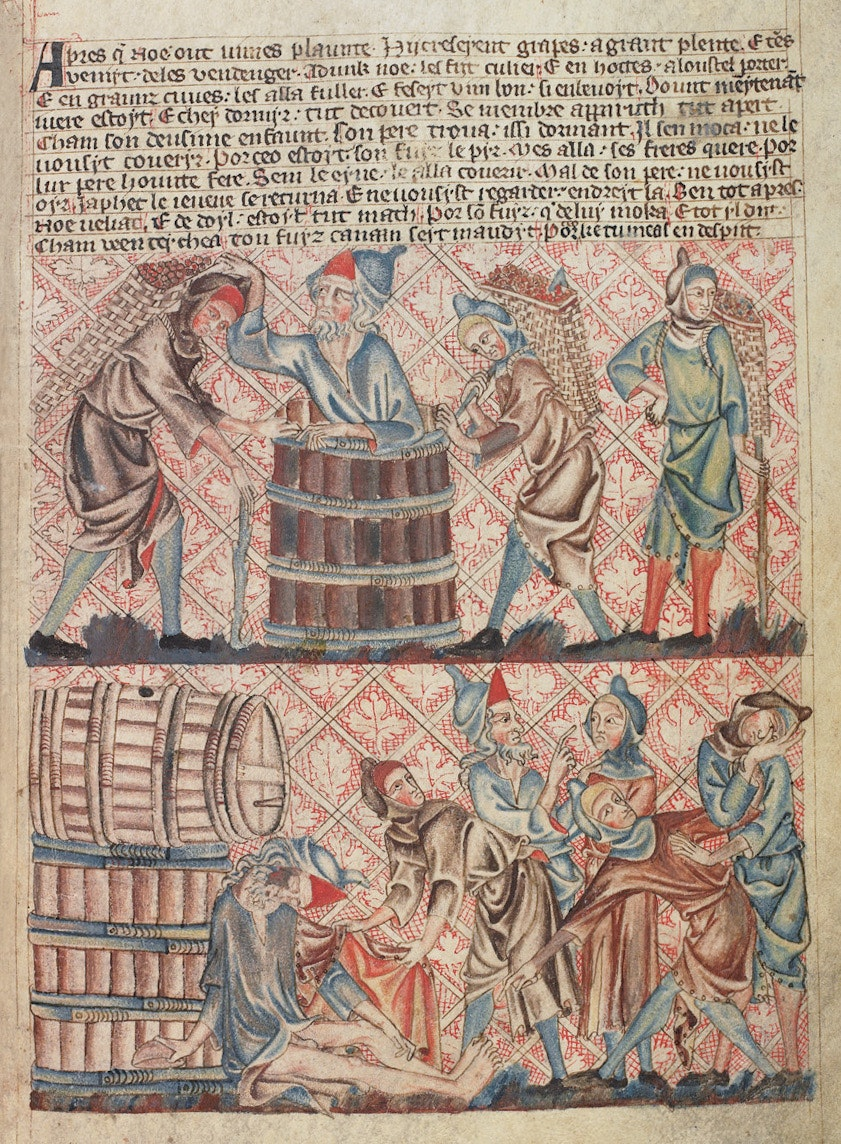 Apres q̃ Noe out vines plaunte. Hy creserent grapes. a graunt plente. E tẽs
venyt. de les vendenger. Adunk noe. les fit culier. E en hottes. a loustel porter.
E en graunz cuves. les alla fuller. E feseyt vin bon. si en bevoyt. Dount meytenãt
ivere estoyt. E chey dormyr. tut decovert. Se membre apparuth tut apert
Cham son deusime enfaunt. Son pere trova. issi dormant. Il sen moca. ne le
vousyt coveryr. Por ceo estoyt. son fuiz le pyr. Mes alla. ses freres quere. Por
lur pere hounte fere. Sem le eyne. le alla coverir. Mal de son pere. ne vousist
oyr. Japhet le jeuene se returna. E ne vousyst regarder. endreyt la. Ben tot apres.
Noe veliat. E de doyl. estoyt tut math. Por sõ fuyz. q̃ de luy moka. E tot yl
Cham ton fuyz canaan seyt maudyt. Porke tu me as en despiit.